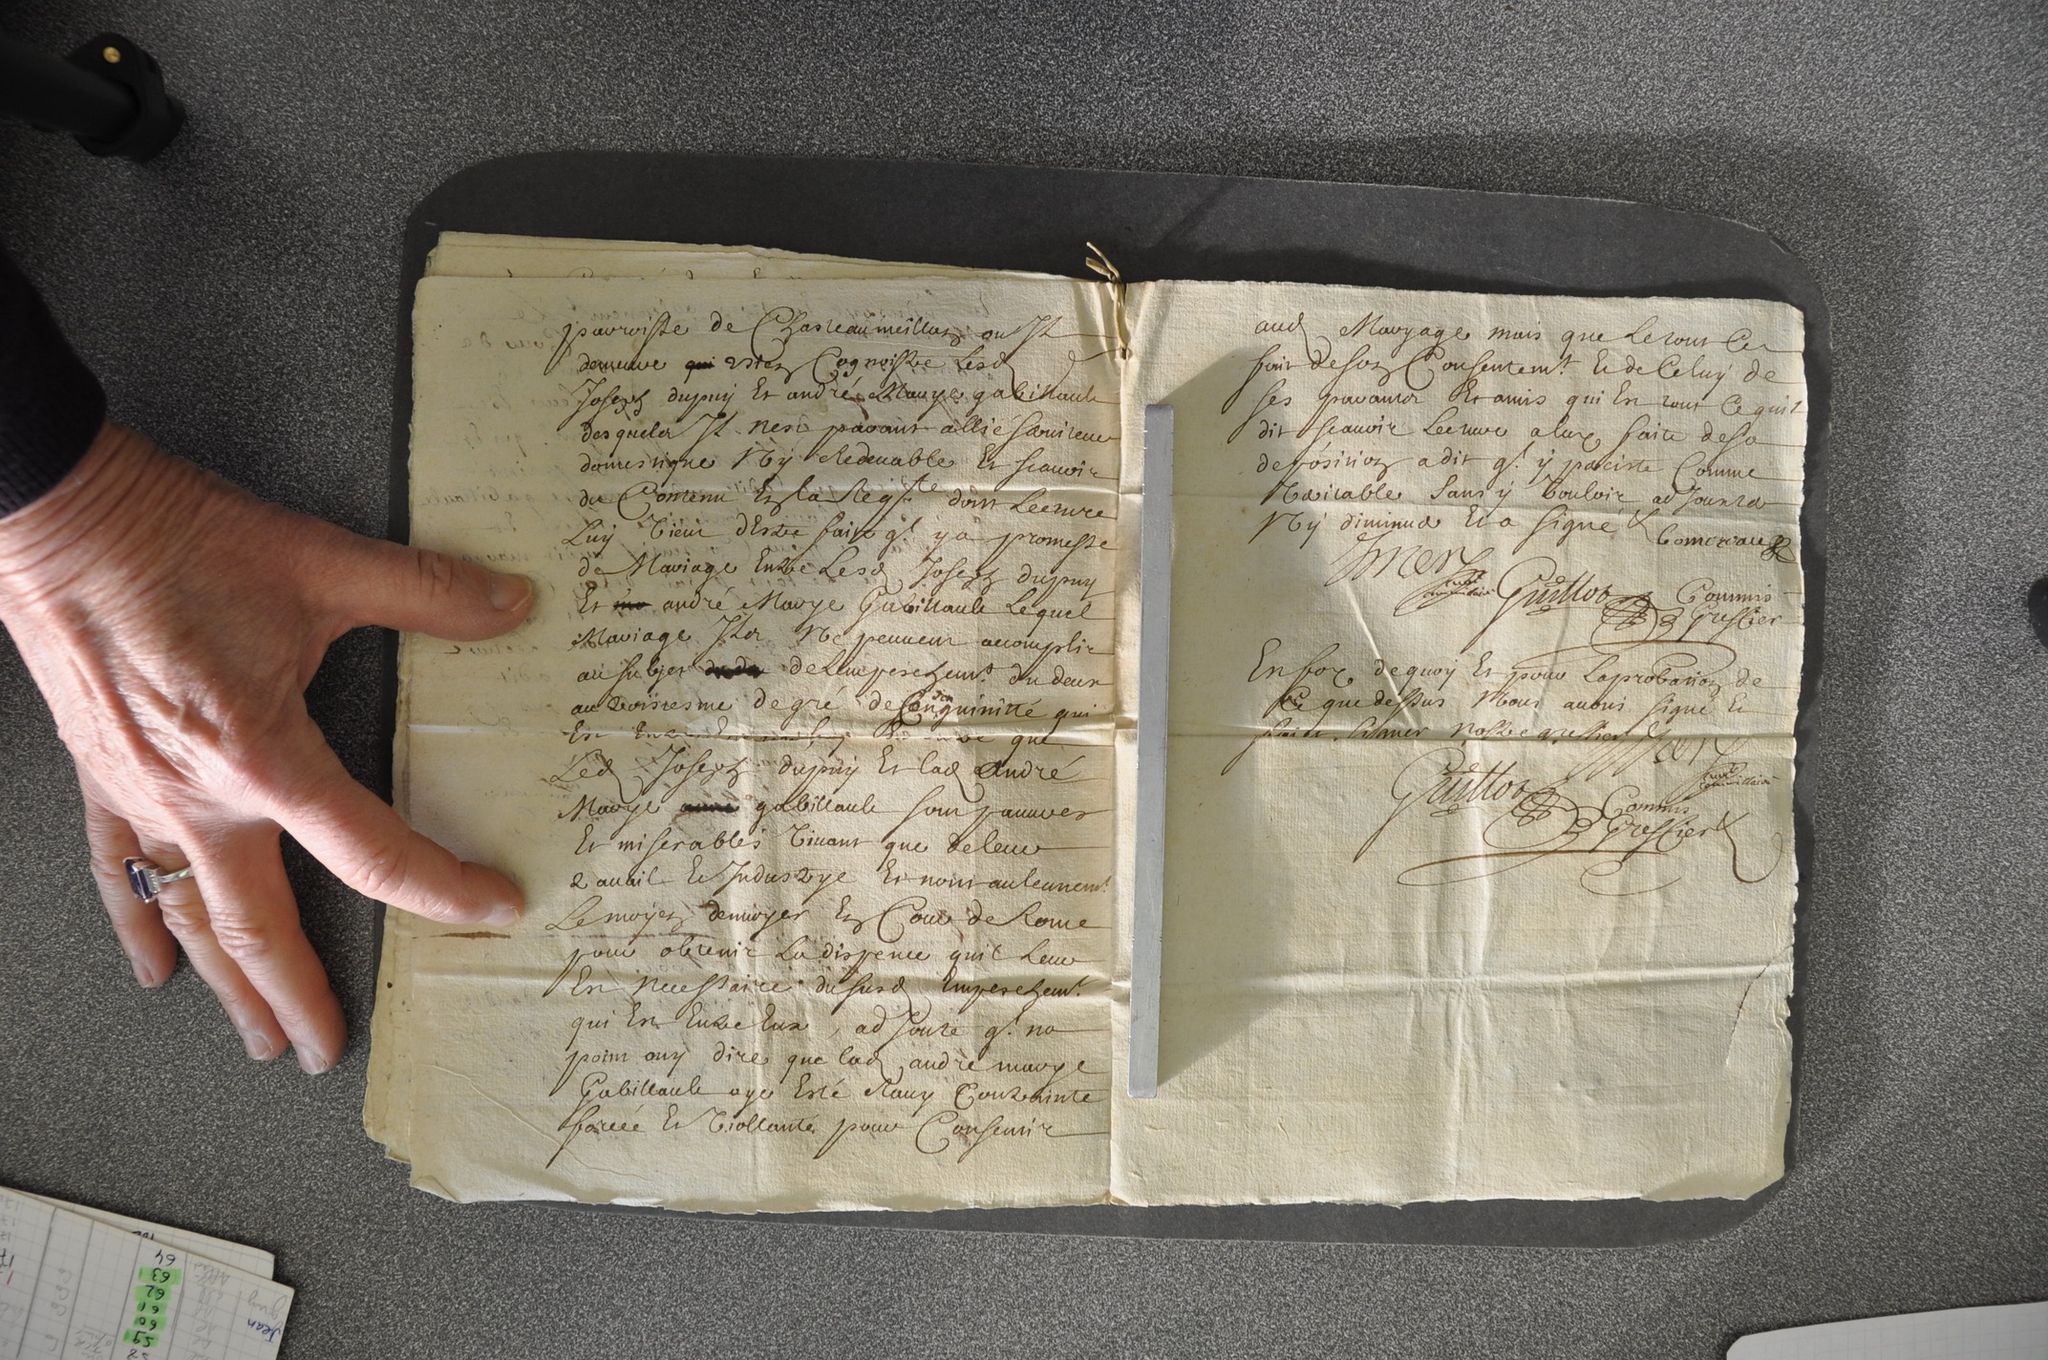 parroisse de Chasteaumeillan ou Il
demeure qui bien Cognoistre Lesd
Joseph dupuy Et andré Marye gabillault
desquels Il nest parant allié Serviteur
domestique Ny Redeuable Et scauoir
du Contenu En la Reqte dont Lecture
Luy Vient destre faite q'l y a promesse
de Mariage Entre Lesd Joseph dupuy
Et andré Marye Gabillault Lequel
Mariage Ils Ne peuuent acomplir
au subjet de Lempeschemt du deux
au troisiesme degré de Consanguinitté qui
Est Entre que
Led Joseph dupuy Et lad andré
Marye gabillault sont pauures
Et miserables Viuant que de leur
trauail Et Industrye Et nont aucunemt
Le moyen denuoyer En Cour de Rome
pour obtenir La dispence quil Leur
Est necessaire du susd Empeschemt
qui Est Entre Eux, adjoute q'l na
point ouy dire que lad andré marye
Gabillault aye Esté Rauy Contrainte
forcée Et Viollanté pour Consentir
aud Maryage mais que Le tout Ce
fait de son Consentemt Et de Celuy de
ses parants Et amis qui Est tout Ce quil
dit scauoir Lecture a luy faite de sa
deposition a dit q'l y perciste Comme
Veritable Sans y Vouloir adjouster
Ny diminuer Et a signé
Guillot Commis
Greffier
En foy de quoy Et pour Laprobation de
Ce que dessus Nous auons signé Et
fait signer Nostre greffier
Guillot Commis
Greffier
64
63
62
61
60
59
58
Jean